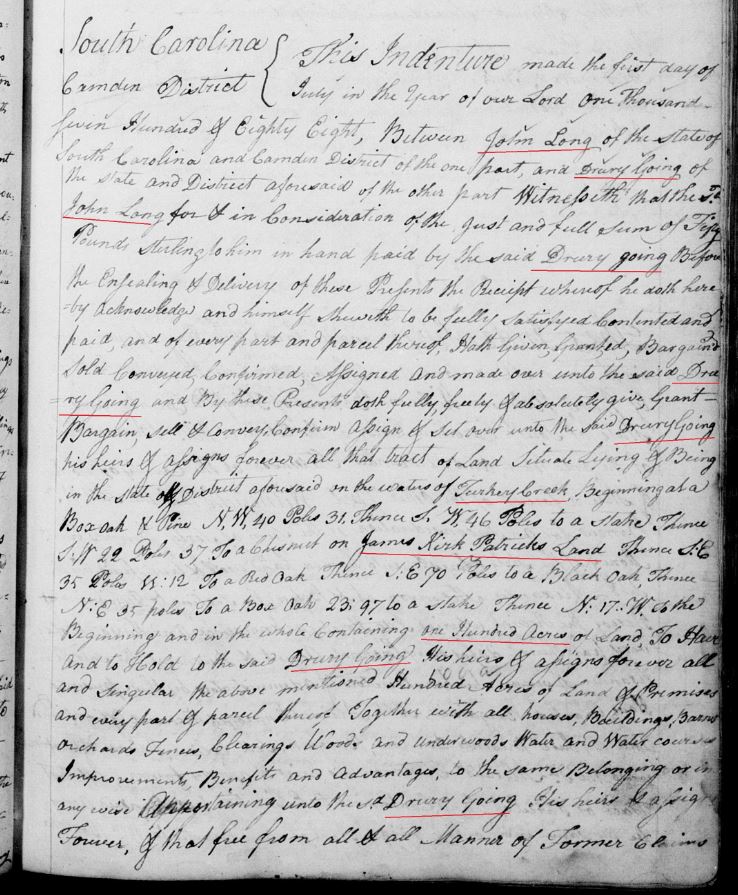 South Carolina
Camden District
This Indenture made the first day of
July in the Year of our Lord One Thousand
Seven Hundred & Eighty Eight, Between John Long of the state of
South Carolina and Camden District of the one part, and Drury Going of
the state and District aforesaid of the other part Witnesseth that the sd
John Long for & in Consideration of the Just and full Sum of Fifty
Pounds sterling to him in hand paid by the said Drury going Before
the Ensealing & Delivery of these Presents the Receipt whereof he doth here
=by acknowledge and himself therewith to be fully satisfyed Contented and
paid, and of every part and parcel thereof, Hath Given, Granted, Bargaind
Sold Conveyed, Confirmed, Assigned and made over unto the said Dru
=ry Going and By these Presents doth fully, freely & absolutely give, Grant
Bargain, sell & convey, Confirm assign & set over unto the said Drury Going
his heirs & assigns forever all that tract of Land Situate Lying & Being
in the state & District aforesaid on the waters of Turkey Creek, Beginning at a
Box oak & Pine N.W. 40 Poles 31. Thence S. W. 46 Poles to a stake Thence
S.W 22 Poles 37 To a Chesnut on James Kirk Patricks Land Thence S:E
35 Poles 11:12 To a Red Oak Thence S:E 70 Poles to a Black Oak, Thence
N:E 35 poles To a Box Oak 23:97 to a stake Thence N:17:W. to the
Beginning and in the whole Containing one Hundred Acres of Land, To Have
and to Hold to the said Drury Going His heirs & assigns forever all
and singular the above mentioned Hundred Acres of Land & Premises
and every part & parcel thereof Together with all houses, Buildings, Barns
Orchards Fences, Clearings Woods and underwoods Water and Water courses
Improvements, Benefits and Advantages, to the same Belonging or in
any wise Appertaining unto the sd Drury Going His heirs & assigns
Forever, & that free from all & all Manner of Former Claims